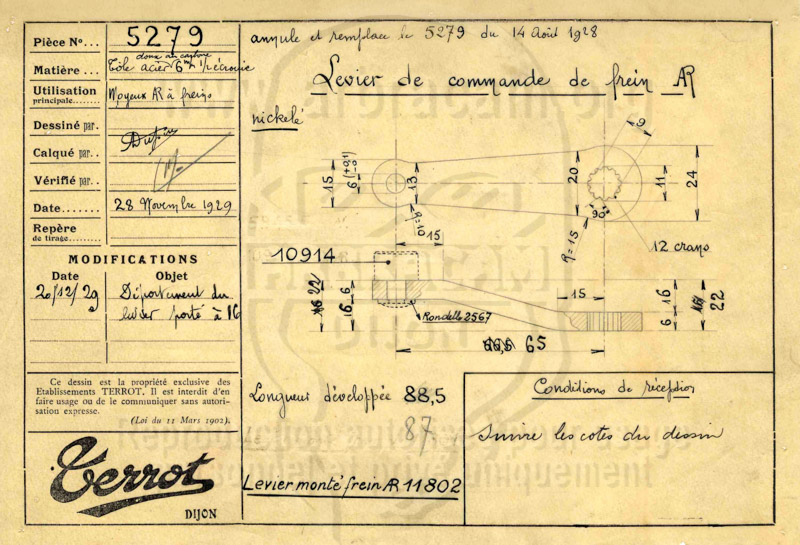 Pièce Nº... 5279
doux au carbone
Matière... Tôle acier 6 m/m
Utilisation
principale....... Moyeux AR à freins
Dessiné par. Dupin
Calqué par..
Vérifié par.
Date....... 28 Novembre 1929
Repère
de tirage.........
MODIFICATIONS
Date Objet
20/12/29 Déportement du
levier porté à 16
Ce dessin est la propriété exclusive des
Etablissements TERROT. Il est interdit d'en
faire usage ou de le communiquer sans autori-
sation expresse.
(Loi du 11 Mars 1902).
Terrot
DIJON
annule et remplace le 5279 du 14 Août 1928
Levier de commande de frein AR
nickelé
15
6 (+0,1)
13
R=10
15
9
20
11
24
90°
R=15
12 crans
10914
22
16
6
Rondelle 2567
15
16
6
22
65
Longueur développée 88,5
87
Levier monté frein AR 11802
Conditions de réception
Suivre les cotes du dessin
Reproduction autorisée pour usage
uniquement